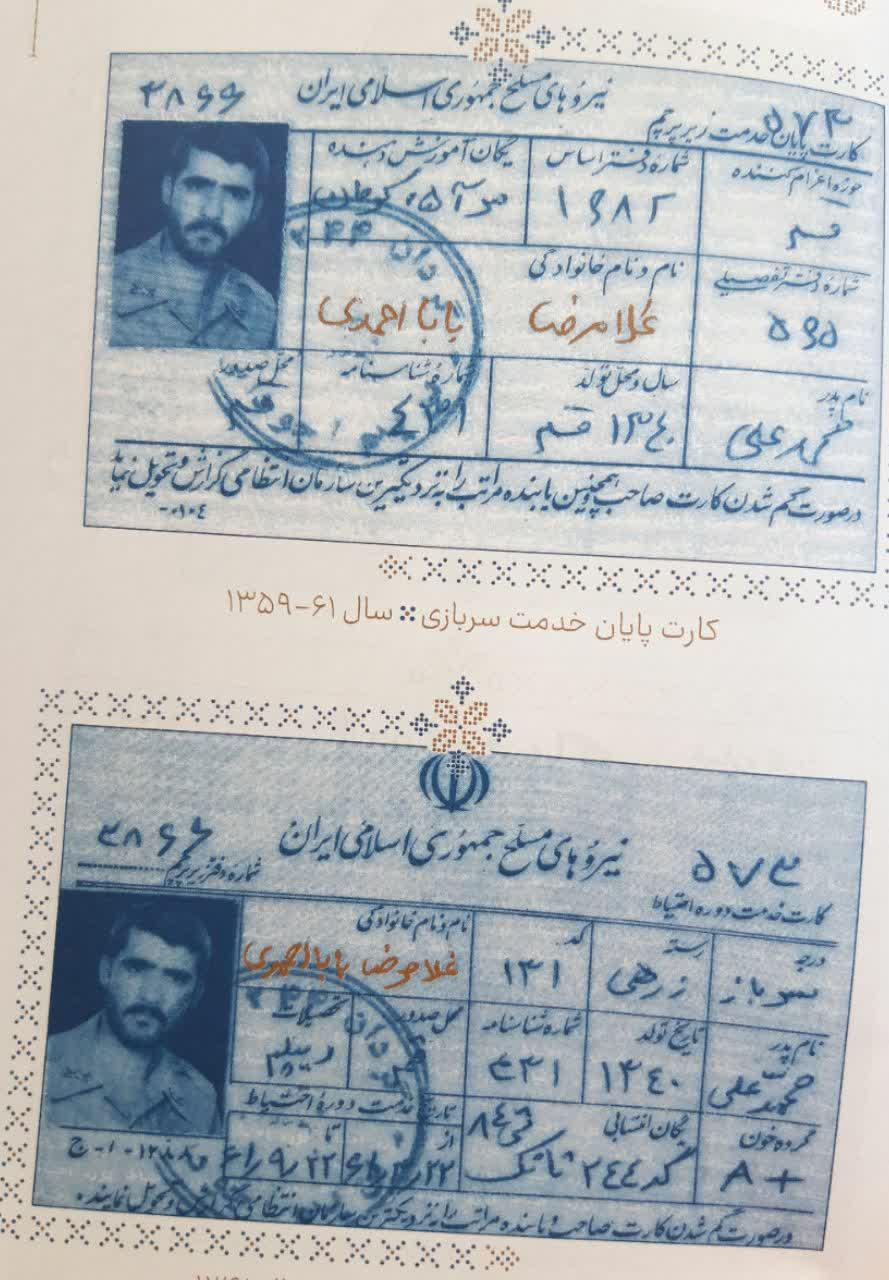 نیروهای مسلح جمهوری اسلامی ایران
۳۸۶۶ ۵۷۳
کارت پایان خدمت زیر پرچم
حوزه اعزام کننده شماره دفتر اساس یگان آموزش دهنده
قم ۱۶۸۲
شماره دفتر تفصیلی نام و نام خانوادگی
۵۶۵ غلامرضا بابا احمدی
نام پدر سال و محل تولد شماره شناسنامه محل صدور
محمد علی ۱۳۴۰ قم
درصورت گم شدن کارت صاحب و همچنین یابنده مراتب را به نزدیکترین سازمان انتظامی گزارش و تحویل نماید
کارت پایان خدمت سربازی سال ۶۱-۱۳۵۹
نیروهای مسلح جمهوری اسلامی ایران
۳۸۶۶ ۵۷۳
شماره دفتر زیر پرچم
کارت خدمت دوره احتیاط
درجه رسته کد نام و نام خانوادگی
سرباز زرهی ۱۳۱ غلامرضا بابا احمدی
نام پدر تاریخ تولد شماره شناسنامه محل صدور تحصیلات
محمد علی ۱۳۴۰ ۴۳۱ قم دیپلم
گروه خون یگان انتسابی تاریخ خدمت دوره احتیاط
از تا
A+ گد ۲۴۴ تانک ۶۱/۹/۲۲
درصورت گم شدن کارت صاحب و یابنده مراتب را به نزدیکترین سازمان انتظامی گزارش و تحویل نمایند.